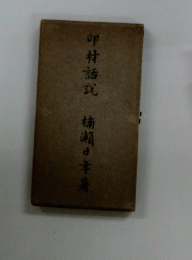 印材話説
楠瀬日年著